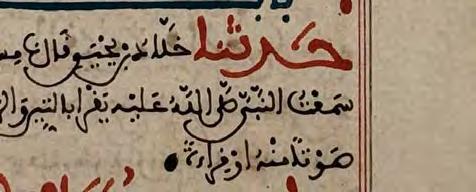 حدثنا خلاد بن يحيى قال نا مسـ
سمعت النبي صلى الله عليه يقرا بالتين والز
صوتا منه او قراءة